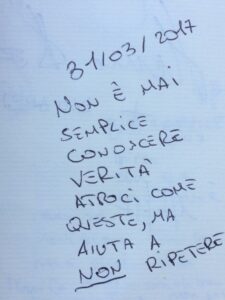 31/03/2017
NON È MAI
SEMPLICE
CONOSCERE
VERITÀ
ATROCI COME
QUESTE, MA
AIUTA A
NON RIPETERE